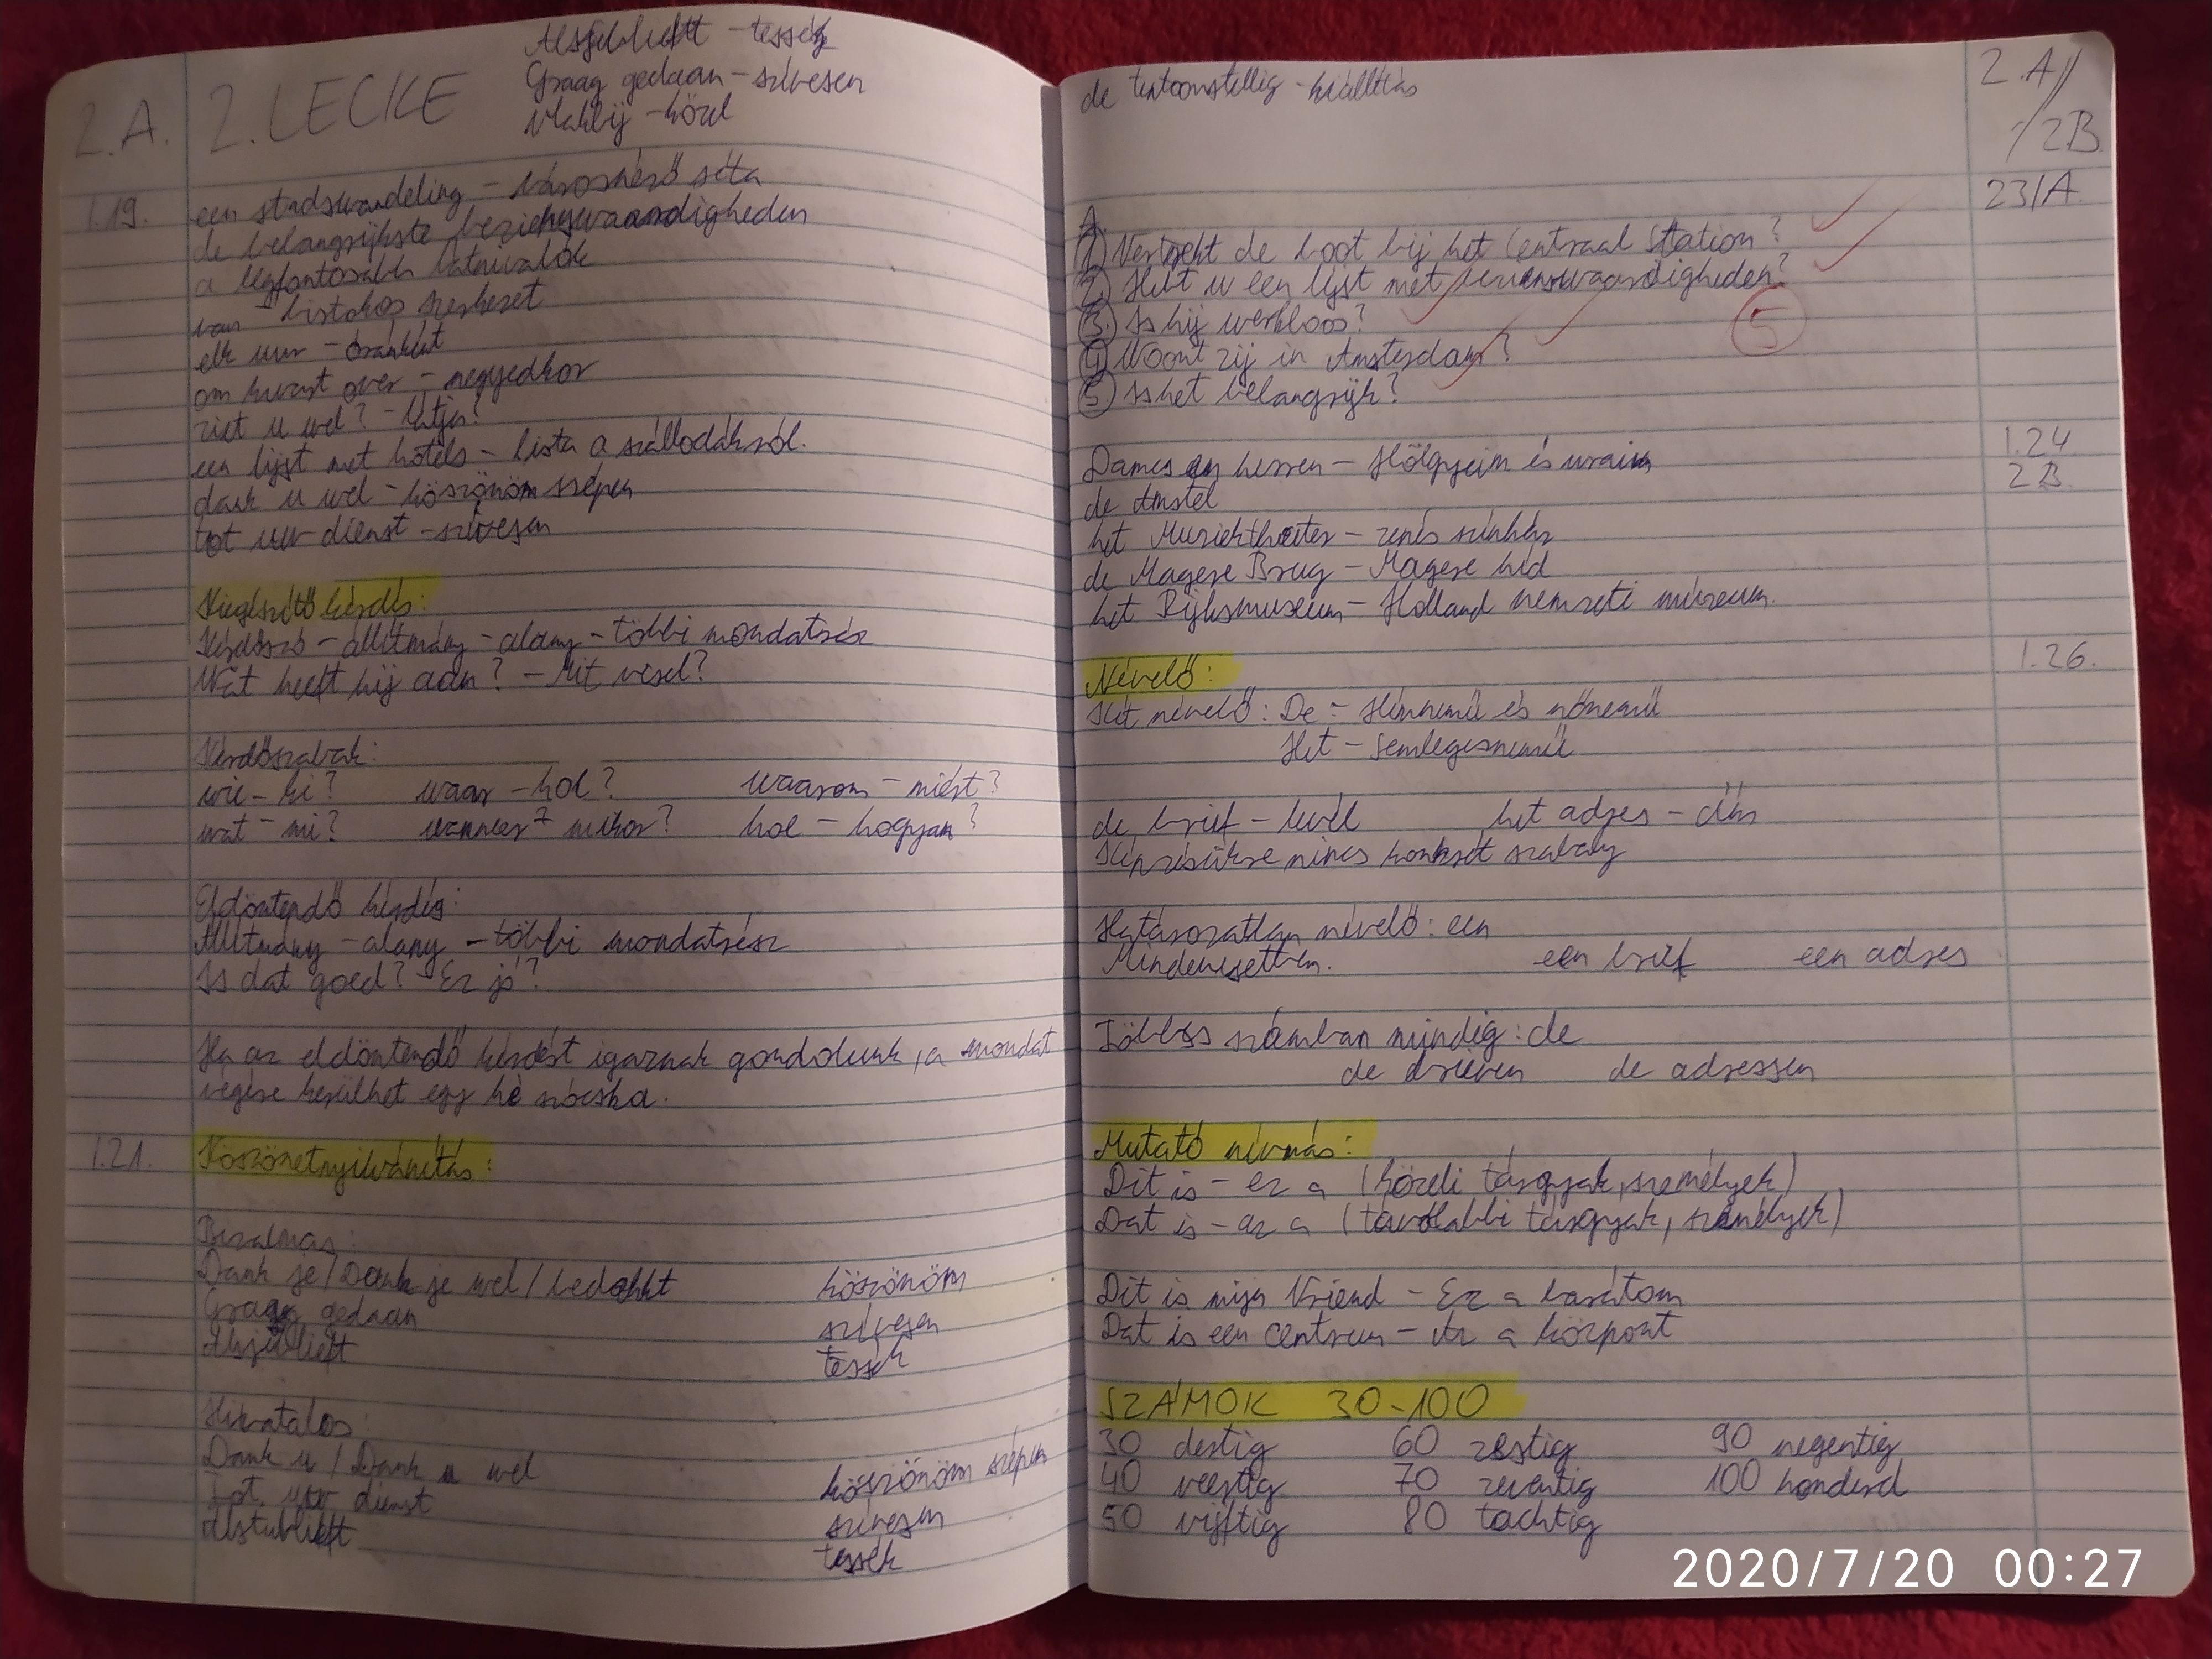 2.A.
2. LECKE
Alsjeblieft - tessék
Graag gedaan - szívesen
Vlakbij - közel
1.19.
een stadswandeling - városnéző séta
de belangrijkste bezienswaardigheden
a legfontosabb látnivalók
van - birtokos szerkezet
elk uur - óránként
om kwart over - negyedkor
ziet u wel? - Látja?
een lijst met hotels - lista a szállodákról.
dank u wel - köszönöm szépen
tot uw dienst - szívesen
Kiegészítő kérdés:
Kérdőszó - állítmány - alany - többi mondatrész
Wat heeft hij aan? - Mit visel?
Kérdőszavak:
wie - ki? waar - hol? waarom - miért?
wat - mi? wanneer - mikor? hoe - hogyan?
Eldöntendő kérdés:
Állítmány - alany - többi mondatrész
Is dat goed? Ez jó?
Ha az eldöntendő kérdést igaznak gondolunk, a mondat
végére kerülhet egy hè szócska.
1.21. Köszönetnyilvánítás:
Bizalmas:
Dank je / Dank je wel / bedankt köszönöm
Graag gedaan szívesen
Alsjeblieft tessék
Hivatalos:
Dank u / Dank u wel köszönöm szépen
Tot uw dienst szívesen
Alstublieft tessék
de tentoonstellig - kiállítás
2.A/
/2B.
23/A.
A.
① Vertrekt de boot bij het Centraal Station?
② Hebt u een lijst met bezienswaardigheden?
③ Is hij werkloos?
④ Woont zij in Amsterdam?
⑤ Is het belangrijk?
5
1.24.
2B.
Dames en herren - Hölgyeim és uraim
de Amstel
het Muziektheater - zenés színház
de Magere Brug - Magere híd
het Rijksmuseum - Holland nemzeti múzeum.
1.26.
Névelő:
Két névelő: De - Hímnemű és nőnemű
Het - Semlegesnemű
de brief - levél het adres - cím
Képzésükre nincs konkrét szabály
Határozatlan névelő: een
Mindenesetben. een brief een adres
Többes számban mindig: de
de brieven de adressen
Mutató névmás:
Dit is - ez a (közeli tárgyak, személyek)
Dat is - az a (távolabbi tárgyak, személyek)
Dit is mijn Vriend - Ez a barátom
Dat is een centrum - Az a központ
SZÁMOK 30-100
30 dertig 60 zestig 90 negentig
40 veertig 70 zeventig 100 honderd
50 vijftig 80 tachtig
2020/7/20 00:27